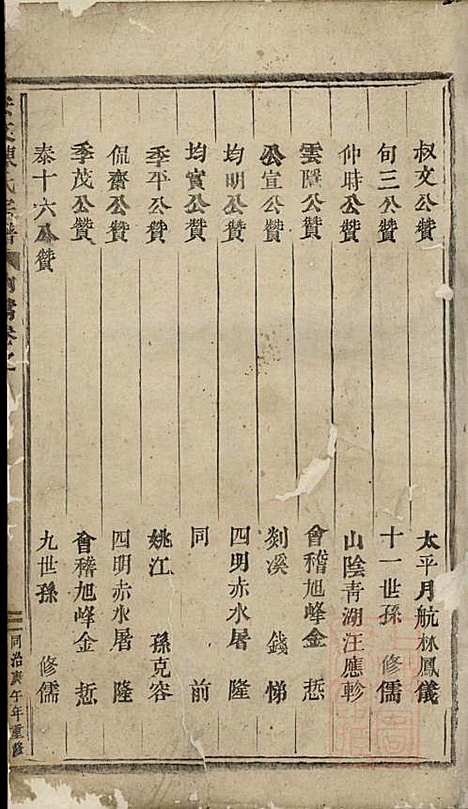 叔文公贊 太平月航林鳳儀
旬三公贊 十一世孫 修儒
仲時公贊 山陰青湖汪應軫
雲隱公贊 會稽旭峰金悊
公宣公贊 剡溪 錢悌
均明公贊 四明赤水屠隆
均實公贊 同前
季平公贊 姚江 孫克容
侃齋公贊 四明赤水屠隆
季茂公贊 會稽旭峰金悊
泰十六公贊 九世孫 修儒
陳氏宗譜 卷之
同治庚午年重修